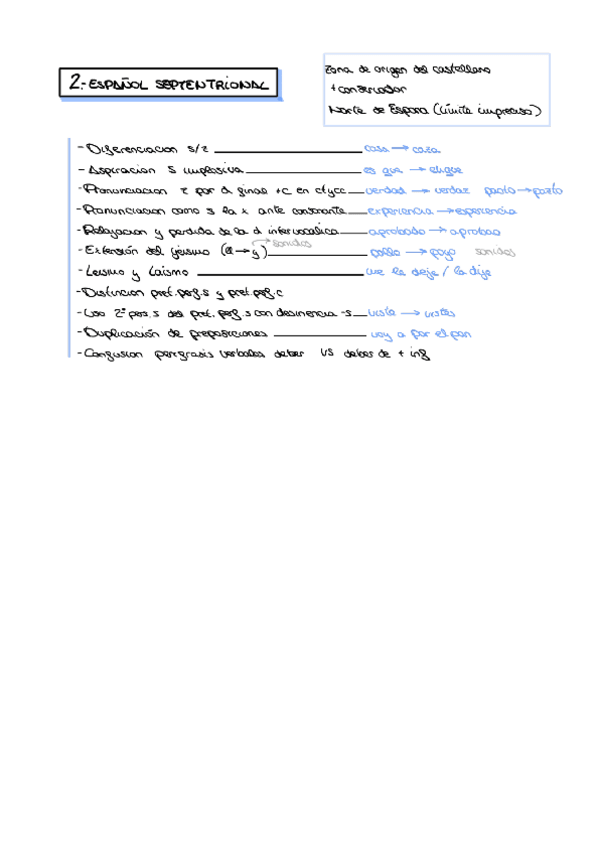 2.- ESPAÑOL SEPTENTRIONAL
Zona de origen del castellano
+ conservador
Norte de España (límite impreciso)
- Diferenciacion s/z casa → caza
- Aspiracion s implosiva es que →
- Pronunciacion z por d final +c en ct y cc verdad → verdaz pacto → pazto
- Pronunciacion como s la x ante consonante experiencia → esperiencia
- Relajacion y perdida de la d intervocalica aprobado → aprobao
- Extensión del yeísmo (ll → y) sonidos pollo → poyo sonidos
- Leísmo y Laísmo le deje / la dije
- Distincion pret.perf.s y pret.perf.c
- Uso 2ª pers.s del pret. perf.s con desinencia -s viste → vistes
- Duplicación de preposiciones voy a por el pan
- Confusion perifrasis verbales deber VS deber de + inf